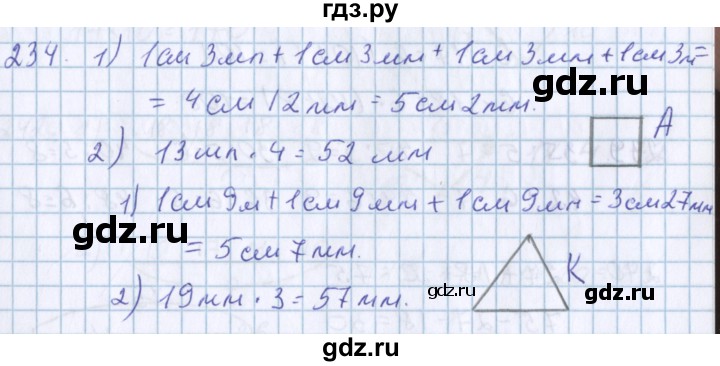 гдз.ру
234. 1) 1см 3мм + 1см 3мм + 1см 3мм + 1см 3м =
= 4см 12мм = 5см 2мм.
gdz.ru
A
2) 13мм · 4 = 52 мм
1) 1см 9м + 1см 9мм + 1см 9мм = 3см 27мм
gdz.ru
= 5см 7мм.
K
gdz.ru
gdz.ru
2) 19мм · 3 = 57мм.
gdz.ru